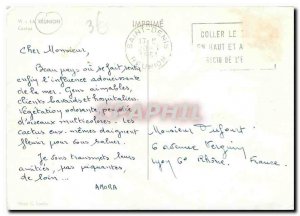 LA RÉUNION
Cactus
IMPRIMÉ
SAINT-DENIS
RÉUNION
COLLER LE
EN HAUT ET A
Cher Monsieur,
Beau pays où se fait sentir
enfin l'influence adoucissante
de la mer. Gens aimables,
clients bavards et hospitaliers.
Végétation odorante, peuplée
d'oiseaux multicolores. Les
cactus eux-mêmes daignent
fleurir pour vous saluer.
Je vous transmets leurs
amitiés, pas piquantes,
de loin...
AMORA
Monsieur Dufour!
6 avenue
Lyon 6e Rhône. France.
DELCAMPE